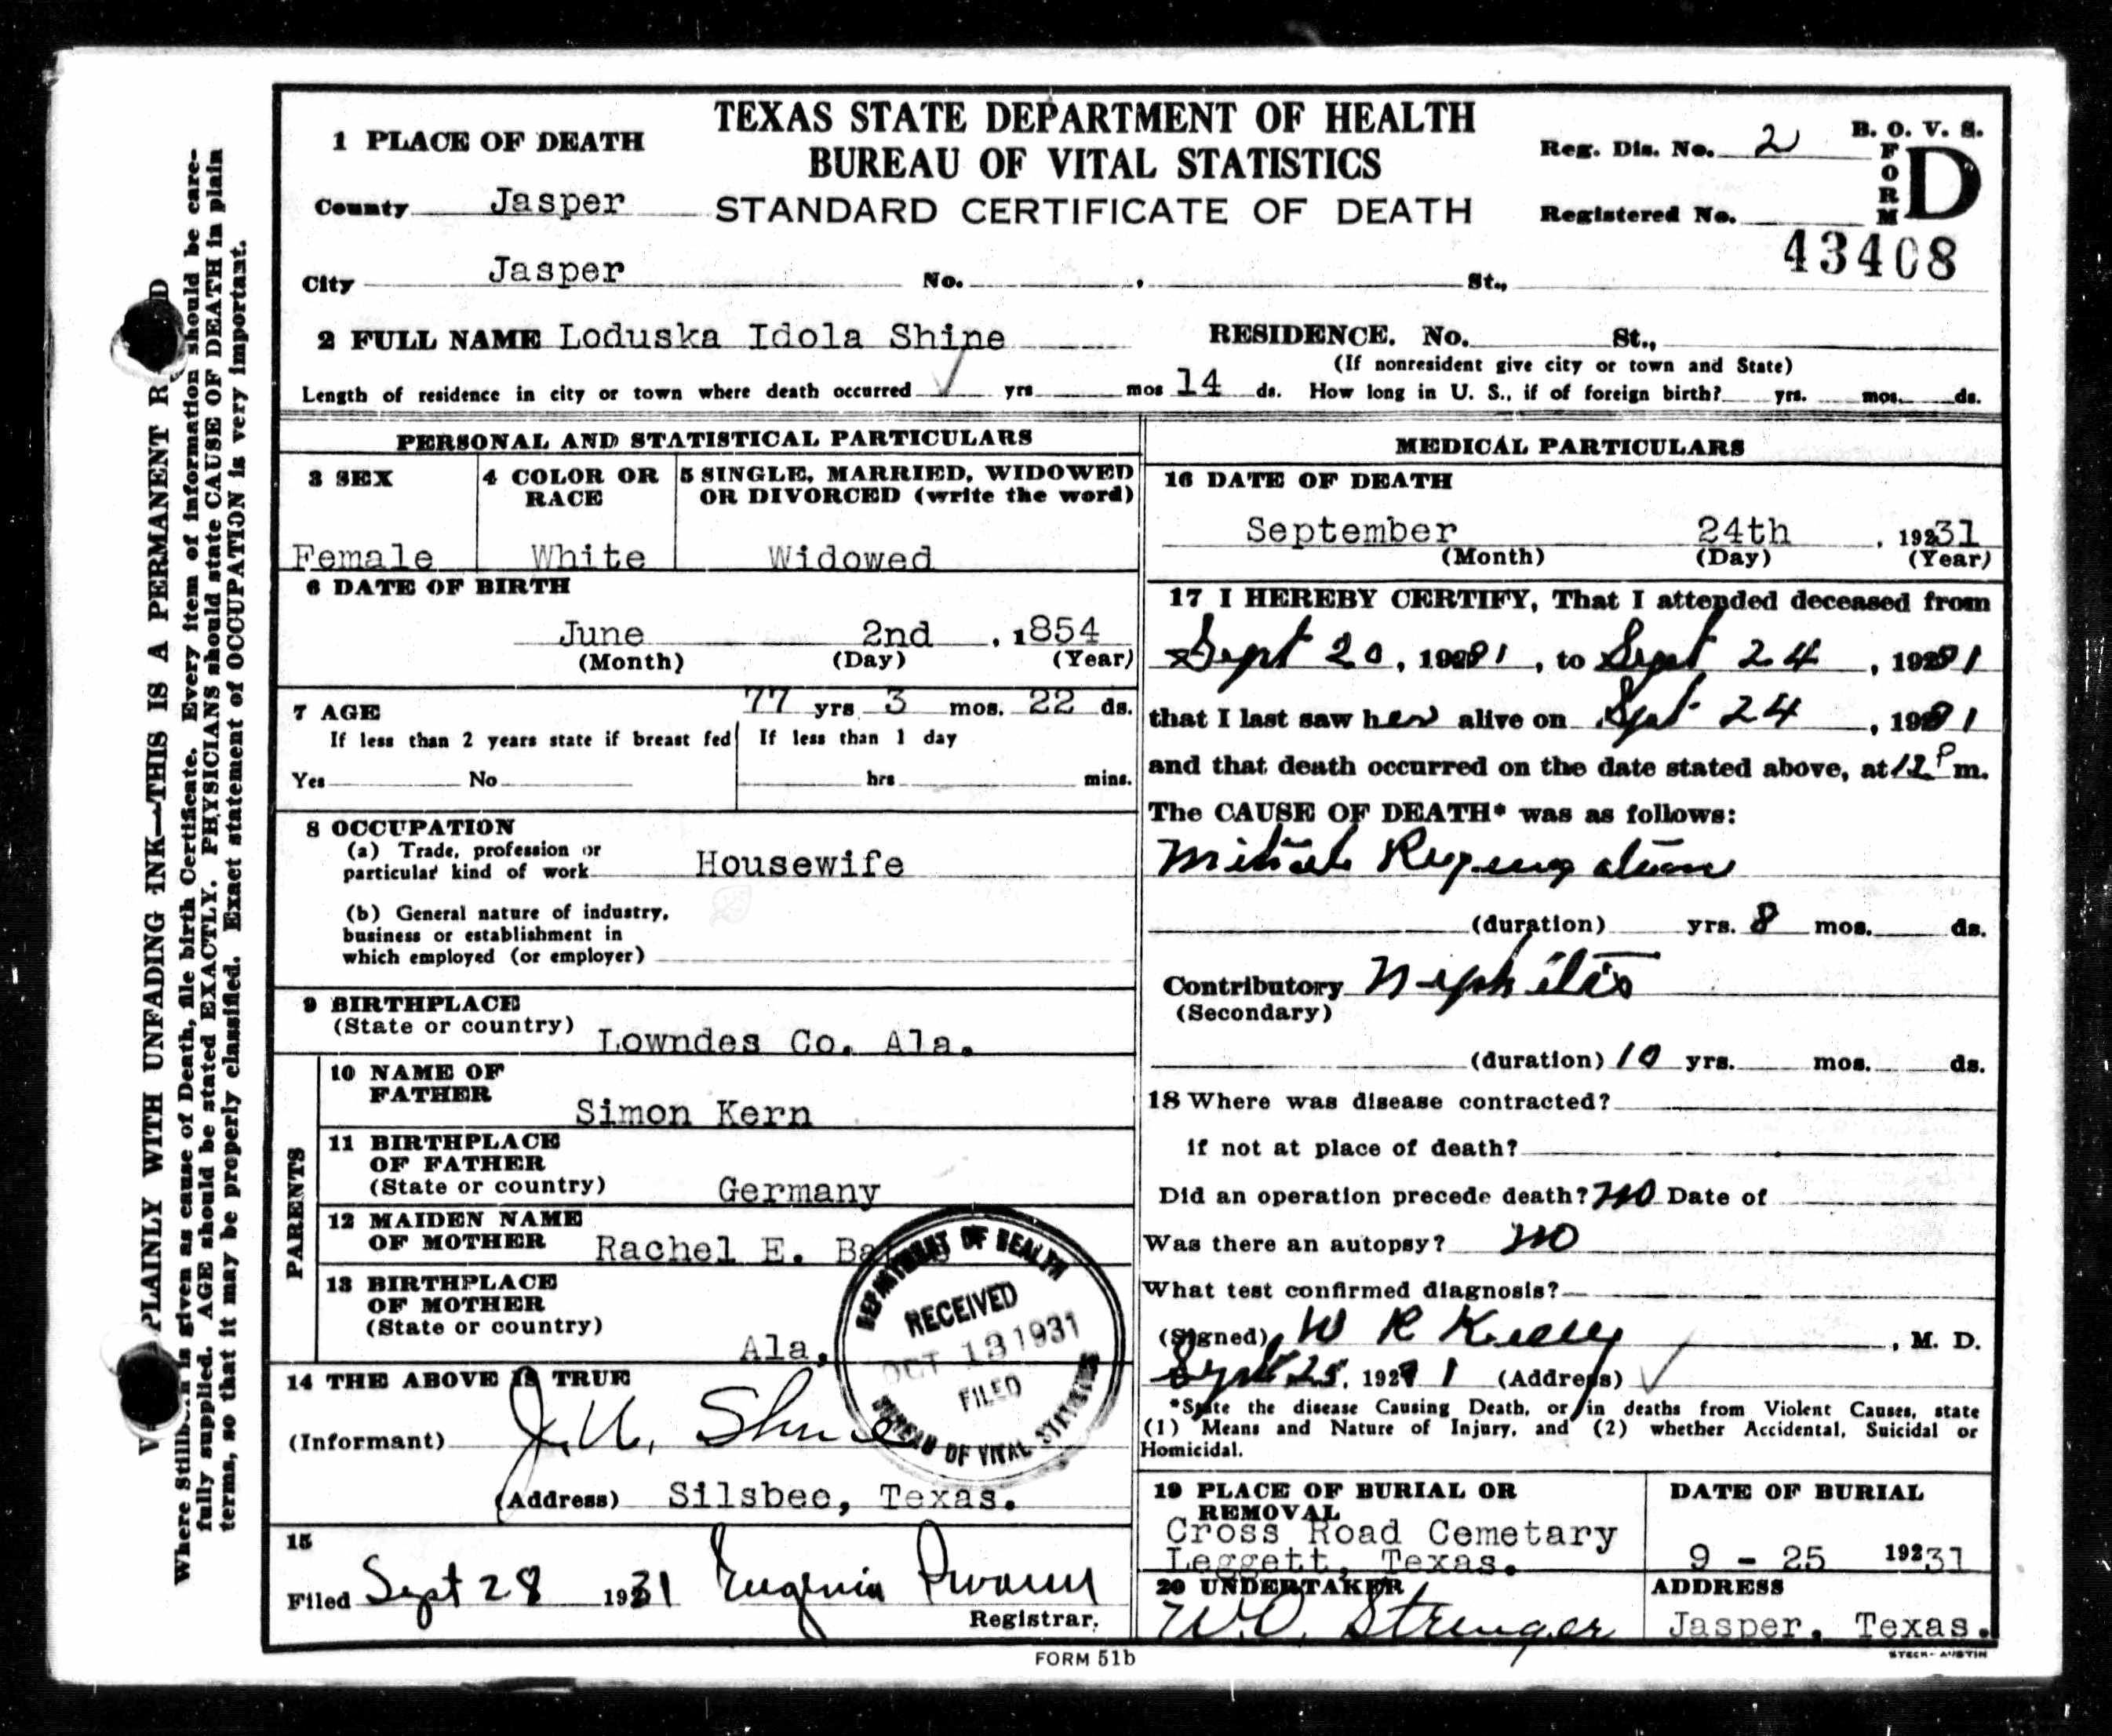 TEXAS STATE DEPARTMENT OF HEALTH
BUREAU OF VITAL STATISTICS
STANDARD CERTIFICATE OF DEATH
Reg. Dis. No. 2
B. O. V. S.
FORM D
Registered No.
43408
1 PLACE OF DEATH
County Jasper
City Jasper No. St.,
2 FULL NAME Loduska Idola Shine
RESIDENCE. No. St.,
(If nonresident give city or town and State)
Length of residence in city or town where death occurred yrs mos 14 ds. How long in U. S., if of foreign birth? yrs. mos. ds.
PERSONAL AND STATISTICAL PARTICULARS
3 SEX
Female
4 COLOR OR RACE
White
5 SINGLE, MARRIED, WIDOWED
OR DIVORCED (write the word)
Widowed
6 DATE OF BIRTH
June 2nd , 1854
(Month) (Day) (Year)
7 AGE 77 yrs 3 mos. 22 ds.
If less than 2 years state if breast fed
Yes No
If less than 1 day
hrs mins.
8 OCCUPATION
(a) Trade, profession or
particular kind of work Housewife
(b) General nature of industry,
business or establishment in
which employed (or employer)
9 BIRTHPLACE
(State or country) Lowndes Co. Ala.
PARENTS
10 NAME OF
FATHER Simon Kern
11 BIRTHPLACE
OF FATHER
(State or country) Germany
12 MAIDEN NAME
OF MOTHER Rachel E.
13 BIRTHPLACE
OF MOTHER
(State or country) Ala.
14 THE ABOVE IS TRUE
(Informant) Shine
(Address) Silsbee, Texas.
15
Filed Sept 28 1931 Eugenia
Registrar.
DEPARTMENT OF HEALTH
RECEIVED
OCT 13 1931
FILED
BUREAU OF VITAL STATISTICS
MEDICAL PARTICULARS
16 DATE OF DEATH
September 24th , 19231
(Month) (Day) (Year)
17 I HEREBY CERTIFY, That I attended deceased from
Sept 20, 1931, to Sept 24, 1931
that I last saw her alive on Sept 24, 1931
and that death occurred on the date stated above, at 12 P m.
The CAUSE OF DEATH* was as follows:
(duration) yrs. 8 mos. ds.
Contributory Nephritis
(Secondary)
(duration) 10 yrs. mos. ds.
18 Where was disease contracted?
if not at place of death?
Did an operation precede death? no Date of
Was there an autopsy? no
What test confirmed diagnosis?
(Signed) W R , M. D.
Sept 25, 1931 (Address)
*State the disease Causing Death, or in deaths from Violent Causes, state
(1) Means and Nature of Injury, and (2) whether Accidental, Suicidal or
Homicidal.
19 PLACE OF BURIAL OR
REMOVAL
Cross Road Cemetary
Leggett, Texas.
DATE OF BURIAL
9 - 25 19231
20 UNDERTAKER
W.O.
ADDRESS
Jasper, Texas.
FORM 51b
STECK-AUSTIN
PLAINLY WITH UNFADING INK—THIS IS A PERMANENT
Where Stillborn is given as cause of Death, file birth Certificate. Every item of information should be care-
fully supplied. AGE should be stated EXACTLY. PHYSICIANS should state CAUSE OF DEATH in plain
terms, so that it may be properly classified. Exact statement of OCCUPATION is very important.